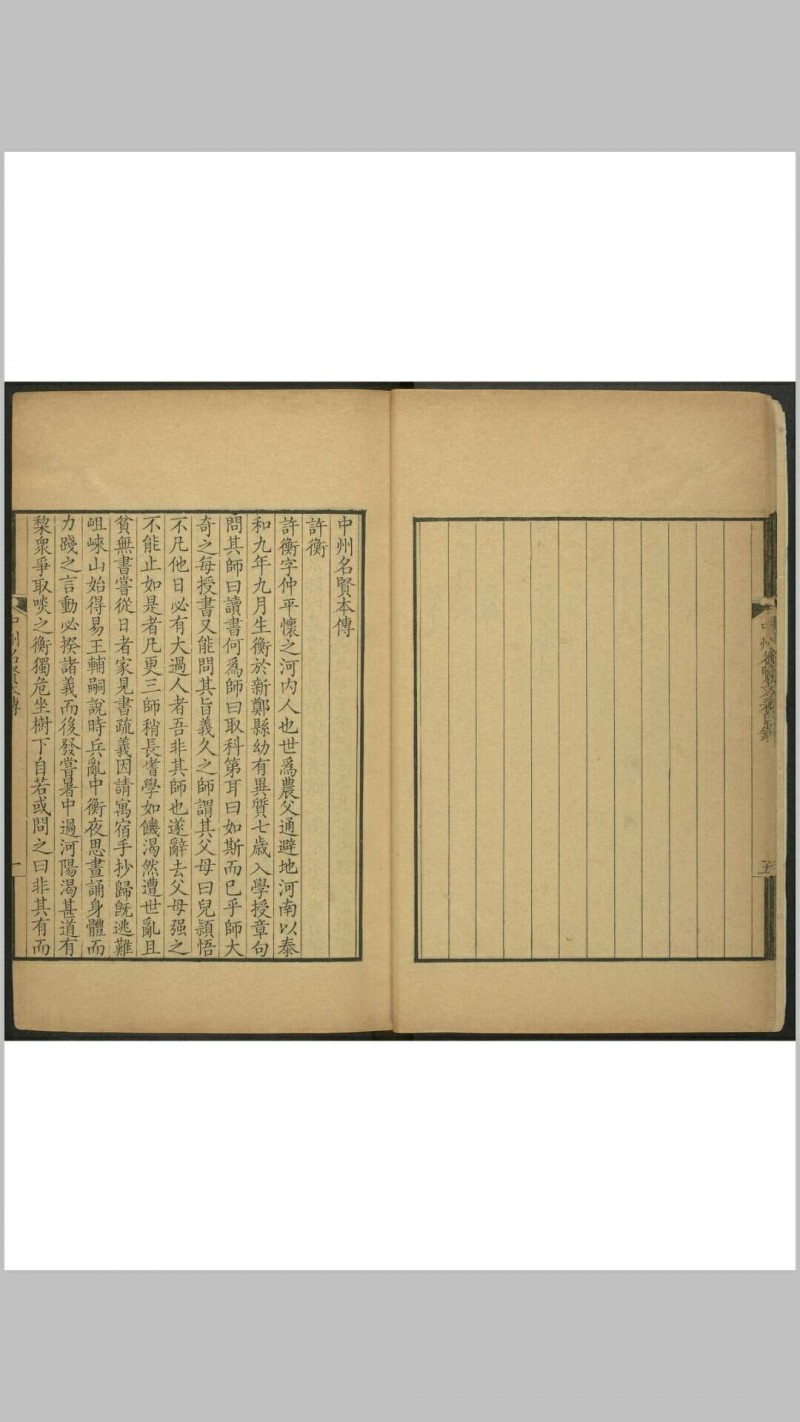 中州名賢文表目錄
五
中州名賢本傳
許衡
許衡字仲平懷之河內人也世爲農父通避地河南以泰
和九年九月生衡於新鄭縣幼有異質七歲入學授章句
問其師曰讀書何爲師曰取科第耳曰如斯而已乎師大
奇之每授書又能問其旨義久之師謂其父母曰兒穎悟
不凡他日必有大過人者吾非其師也遂辭去父母强之
不能止如是者凡更三師稍長嗜學如饑渴然遭世亂且
貧無書嘗從日者家見書疏義因請寓宿手抄歸旣逃難
岨崍山始得易王輔嗣說時兵亂中衡夜思晝誦身體而
力踐之言動必揆諸義而後發嘗暑中過河陽渴甚道有
棃衆爭取啖之衡獨危坐樹下自若或問之曰非其有而
中州名賢本傳
一